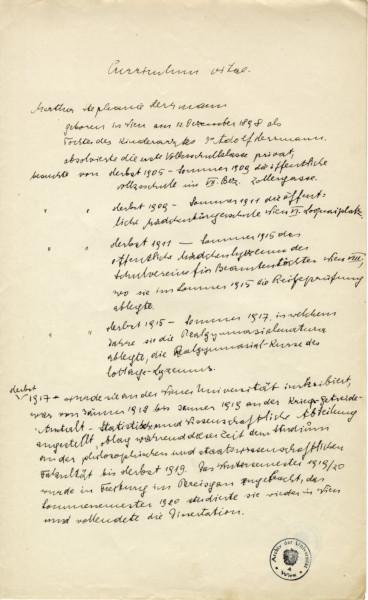 Curriculum vitae.
Martha Stephanie Herrmann
geboren in Wien am 12. Dezember 1898 als
Tochter des Kinderarztes Dr Adolf Herrmann.
absolvierte die erste Volksschulklasse privat,
besuchte von Herbst 1905 – Sommer 1909 die öffentliche
Volksschule im VII. Bez. Zollergasse.
" " Herbst 1909 – Sommer 1911 die öffent-
liche Mädchenbürgerschule Wien VI. Loquaiplatz
" " Herbst 1911 – Sommer 1915 das
öffentliche Mädchenlyzeum des
Schulvereins für Beamtentöchter Wien VIII,
wo sie im Sommer 1915 die Reifeprüfung
ablegte.
" " Herbst 1915 – Sommer 1917, in welchem
Jahre sie die Realgymnasialmatura
ablegte, die Realgymnasial-Kurse des
Cottage-Lyzeums.
Herbst
1917 wurde sie an der Wiener Universität inskribiert,
war von Jänner 1918 bis Jänner 1919 an der Kriegs-Getreide-
Anstalt – Statistische und Wissenschaftliche Abteilung
angestellt, oblag während dieser Zeit dem Studium
an der philosophischen und staatswissenschaftlichen
Fakultät bis Herbst 1919. Das Wintersemester 1919/20
wurde in Freiburg im Breisgau zugebracht, das
Sommersemester 1920 studierte sie wieder in Wien
und vollendete die Dissertation.
Archiv der Universität
Wien